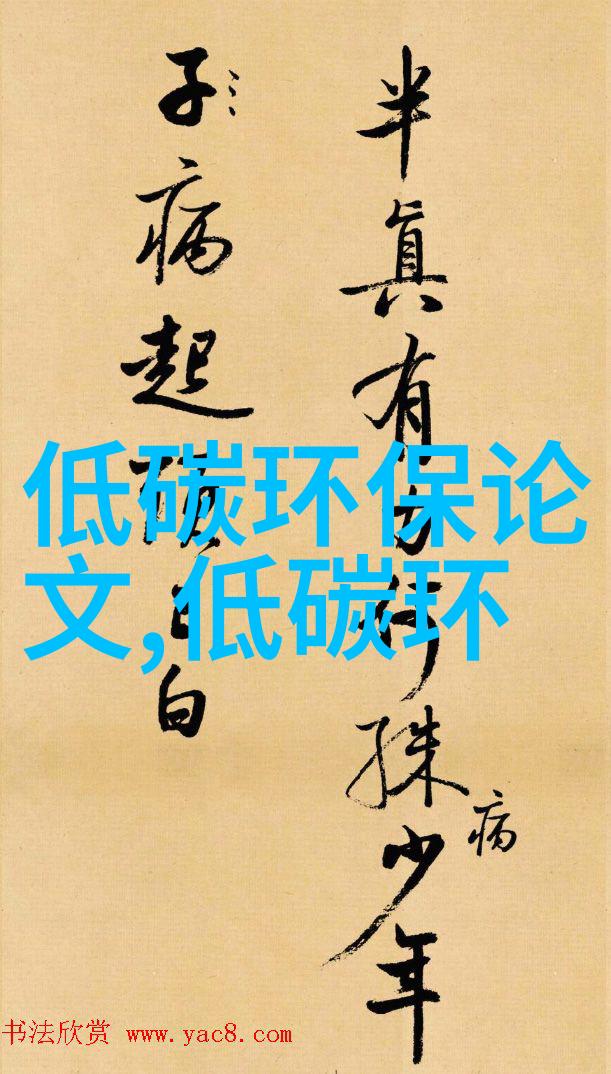 半真有力何殊少年
病
子病起已白
低碳环保论
文,低碳环
书法欣赏 www.yac8.com